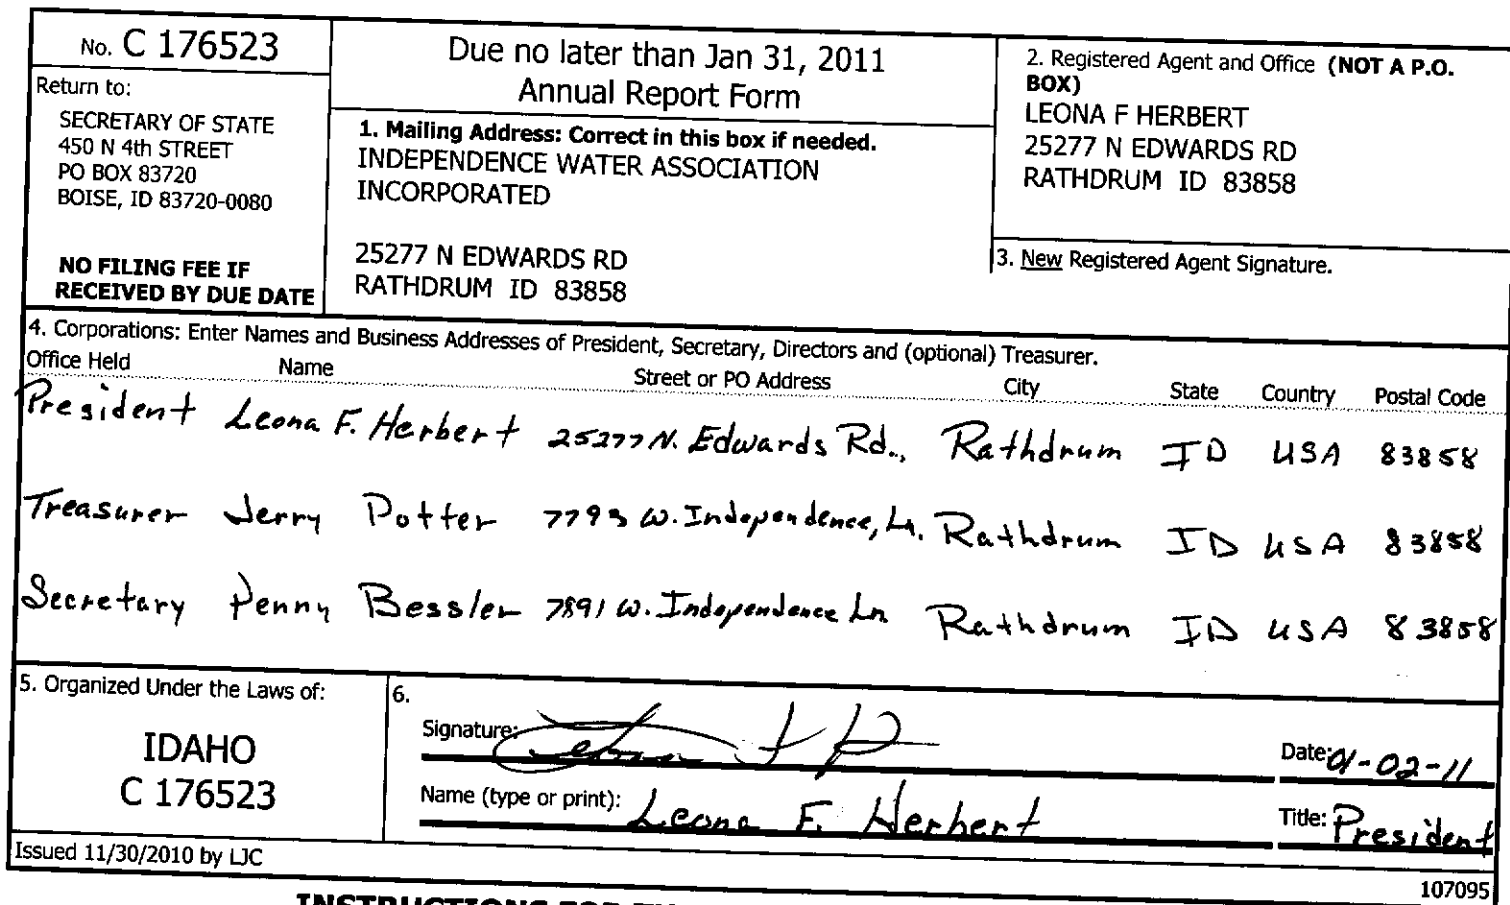 No. C 176523
Return to:
SECRETARY OF STATE
450 N 4th STREET
PO BOX 83720
BOISE, ID 83720-0080
NO FILING FEE IF
RECEIVED BY DUE DATE
Due no later than Jan 31, 2011
Annual Report Form
1. Mailing Address: Correct in this box if needed.
INDEPENDENCE WATER ASSOCIATION
INCORPORATED
25277 N EDWARDS RD
RATHDRUM ID 83858
2. Registered Agent and Office (NOT A P.O.
BOX)
LEONA F HERBERT
25277 N EDWARDS RD
RATHDRUM ID 83858
3. New Registered Agent Signature.
4. Corporations: Enter Names and Business Addresses of President, Secretary, Directors and (optional) Treasurer.
Office Held Name Street or PO Address City State Country Postal Code
President Leona F. Herbert 25277 N. Edwards Rd., Rathdrum ID USA 83858
Treasurer Jerry Potter 7793 W. Independence, Ln. Rathdrum ID USA 83858
Secretary Penny Bessler 7891 W. Independence Ln Rathdrum ID USA 83858
5. Organized Under the Laws of:
IDAHO
C 176523
6.
Signature:
Date: 01-02-11
Name (type or print): Leona F. Herbert
Title: President
Issued 11/30/2010 by LJC
107095